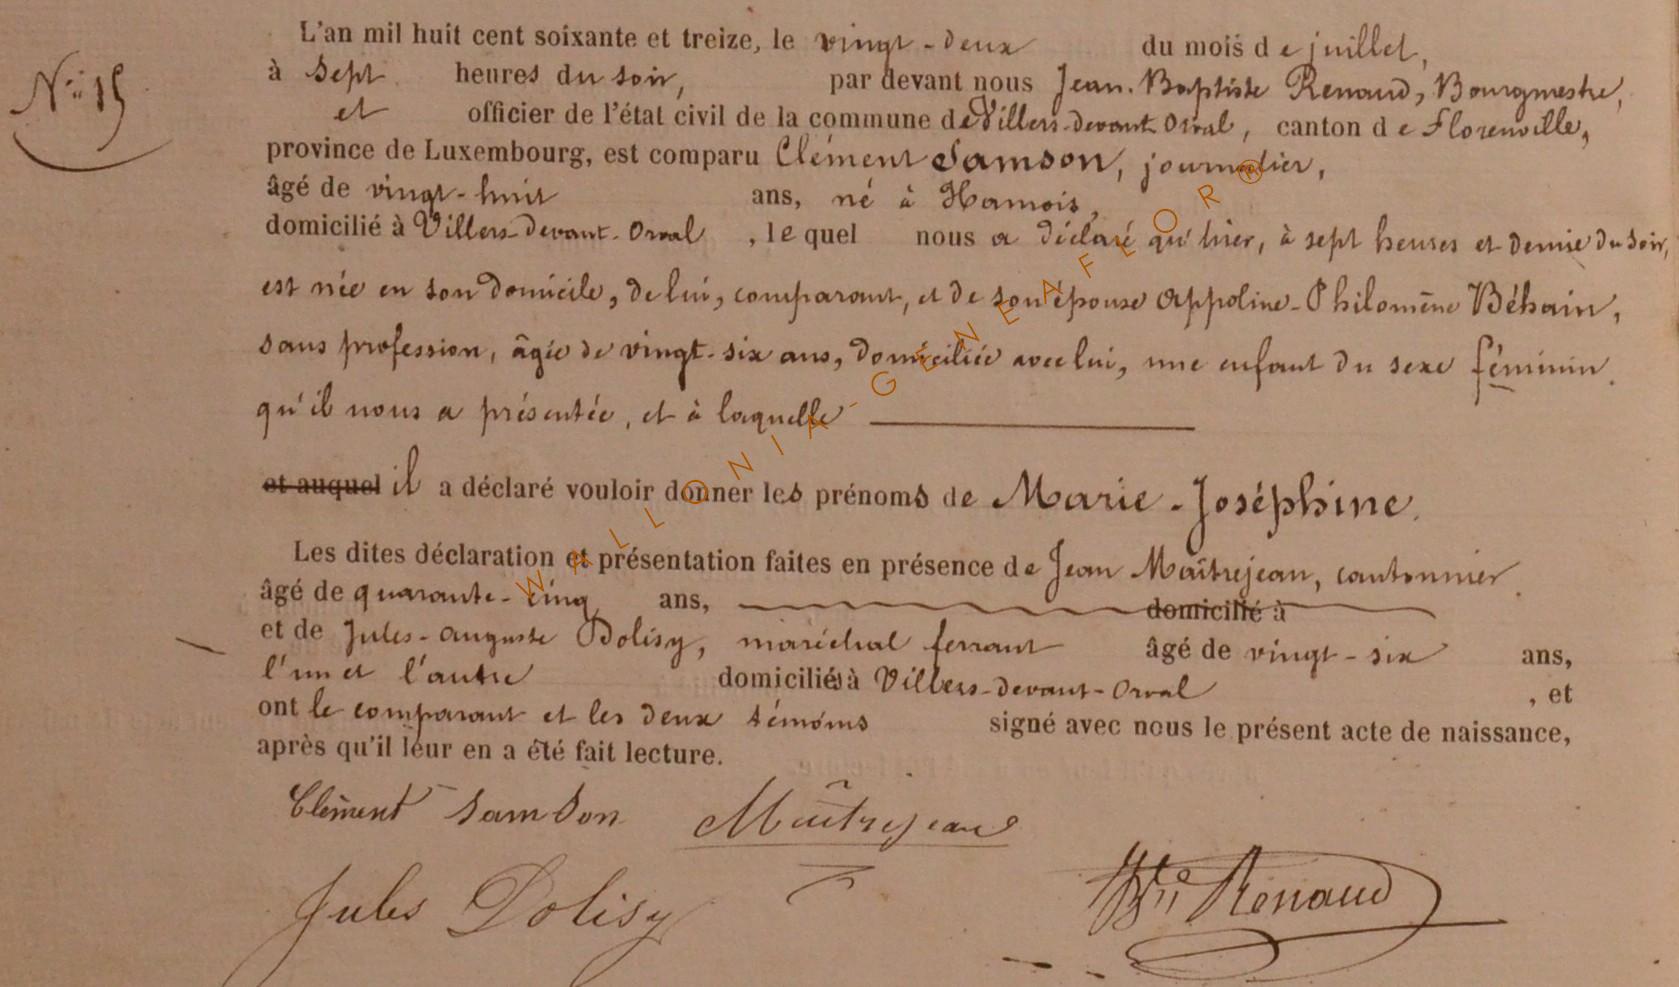 N° 15
L'an mil huit cent soixante et treize, le vingt-deux du mois de juillet,
à sept heures du soir, par devant nous Jean-Baptiste Renaud, Bourgmestre,
et officier de l'état civil de la commune de Villers-devant-Orval, canton de Florenville,
province de Luxembourg, est comparu Clément Samson, journalier,
âgé de vingt-huit ans, né à Hamois,
domicilié à Villers-devant-Orval, lequel nous a déclaré qu'hier, à sept heures et demie du soir,
est née en son domicile, de lui, comparant, et de son épouse Appoline-Philomène Béhain,
sans profession, âgée de vingt-six ans, domiciliée avec lui, une enfant du sexe féminin
qu'il nous a présentée, et à laquelle
et auquel il a déclaré vouloir donner les prénoms de Marie-Joséphine.
Les dites déclaration et présentation faites en présence de Jean Maîtrejean, cantonnier
âgé de quarante-cinq ans, domicilié à
et de Jules-Auguste Dolisy, maréchal ferrant âgé de vingt-six ans,
l'un et l'autre domiciliés à Villers-devant-Orval, et
ont le comparant et les deux témoins signé avec nous le présent acte de naissance,
après qu'il leur en a été fait lecture.
Clément Samson Maîtrejean
Jules Dolisy Renaud
WALLONIA-GENEAFLOR®